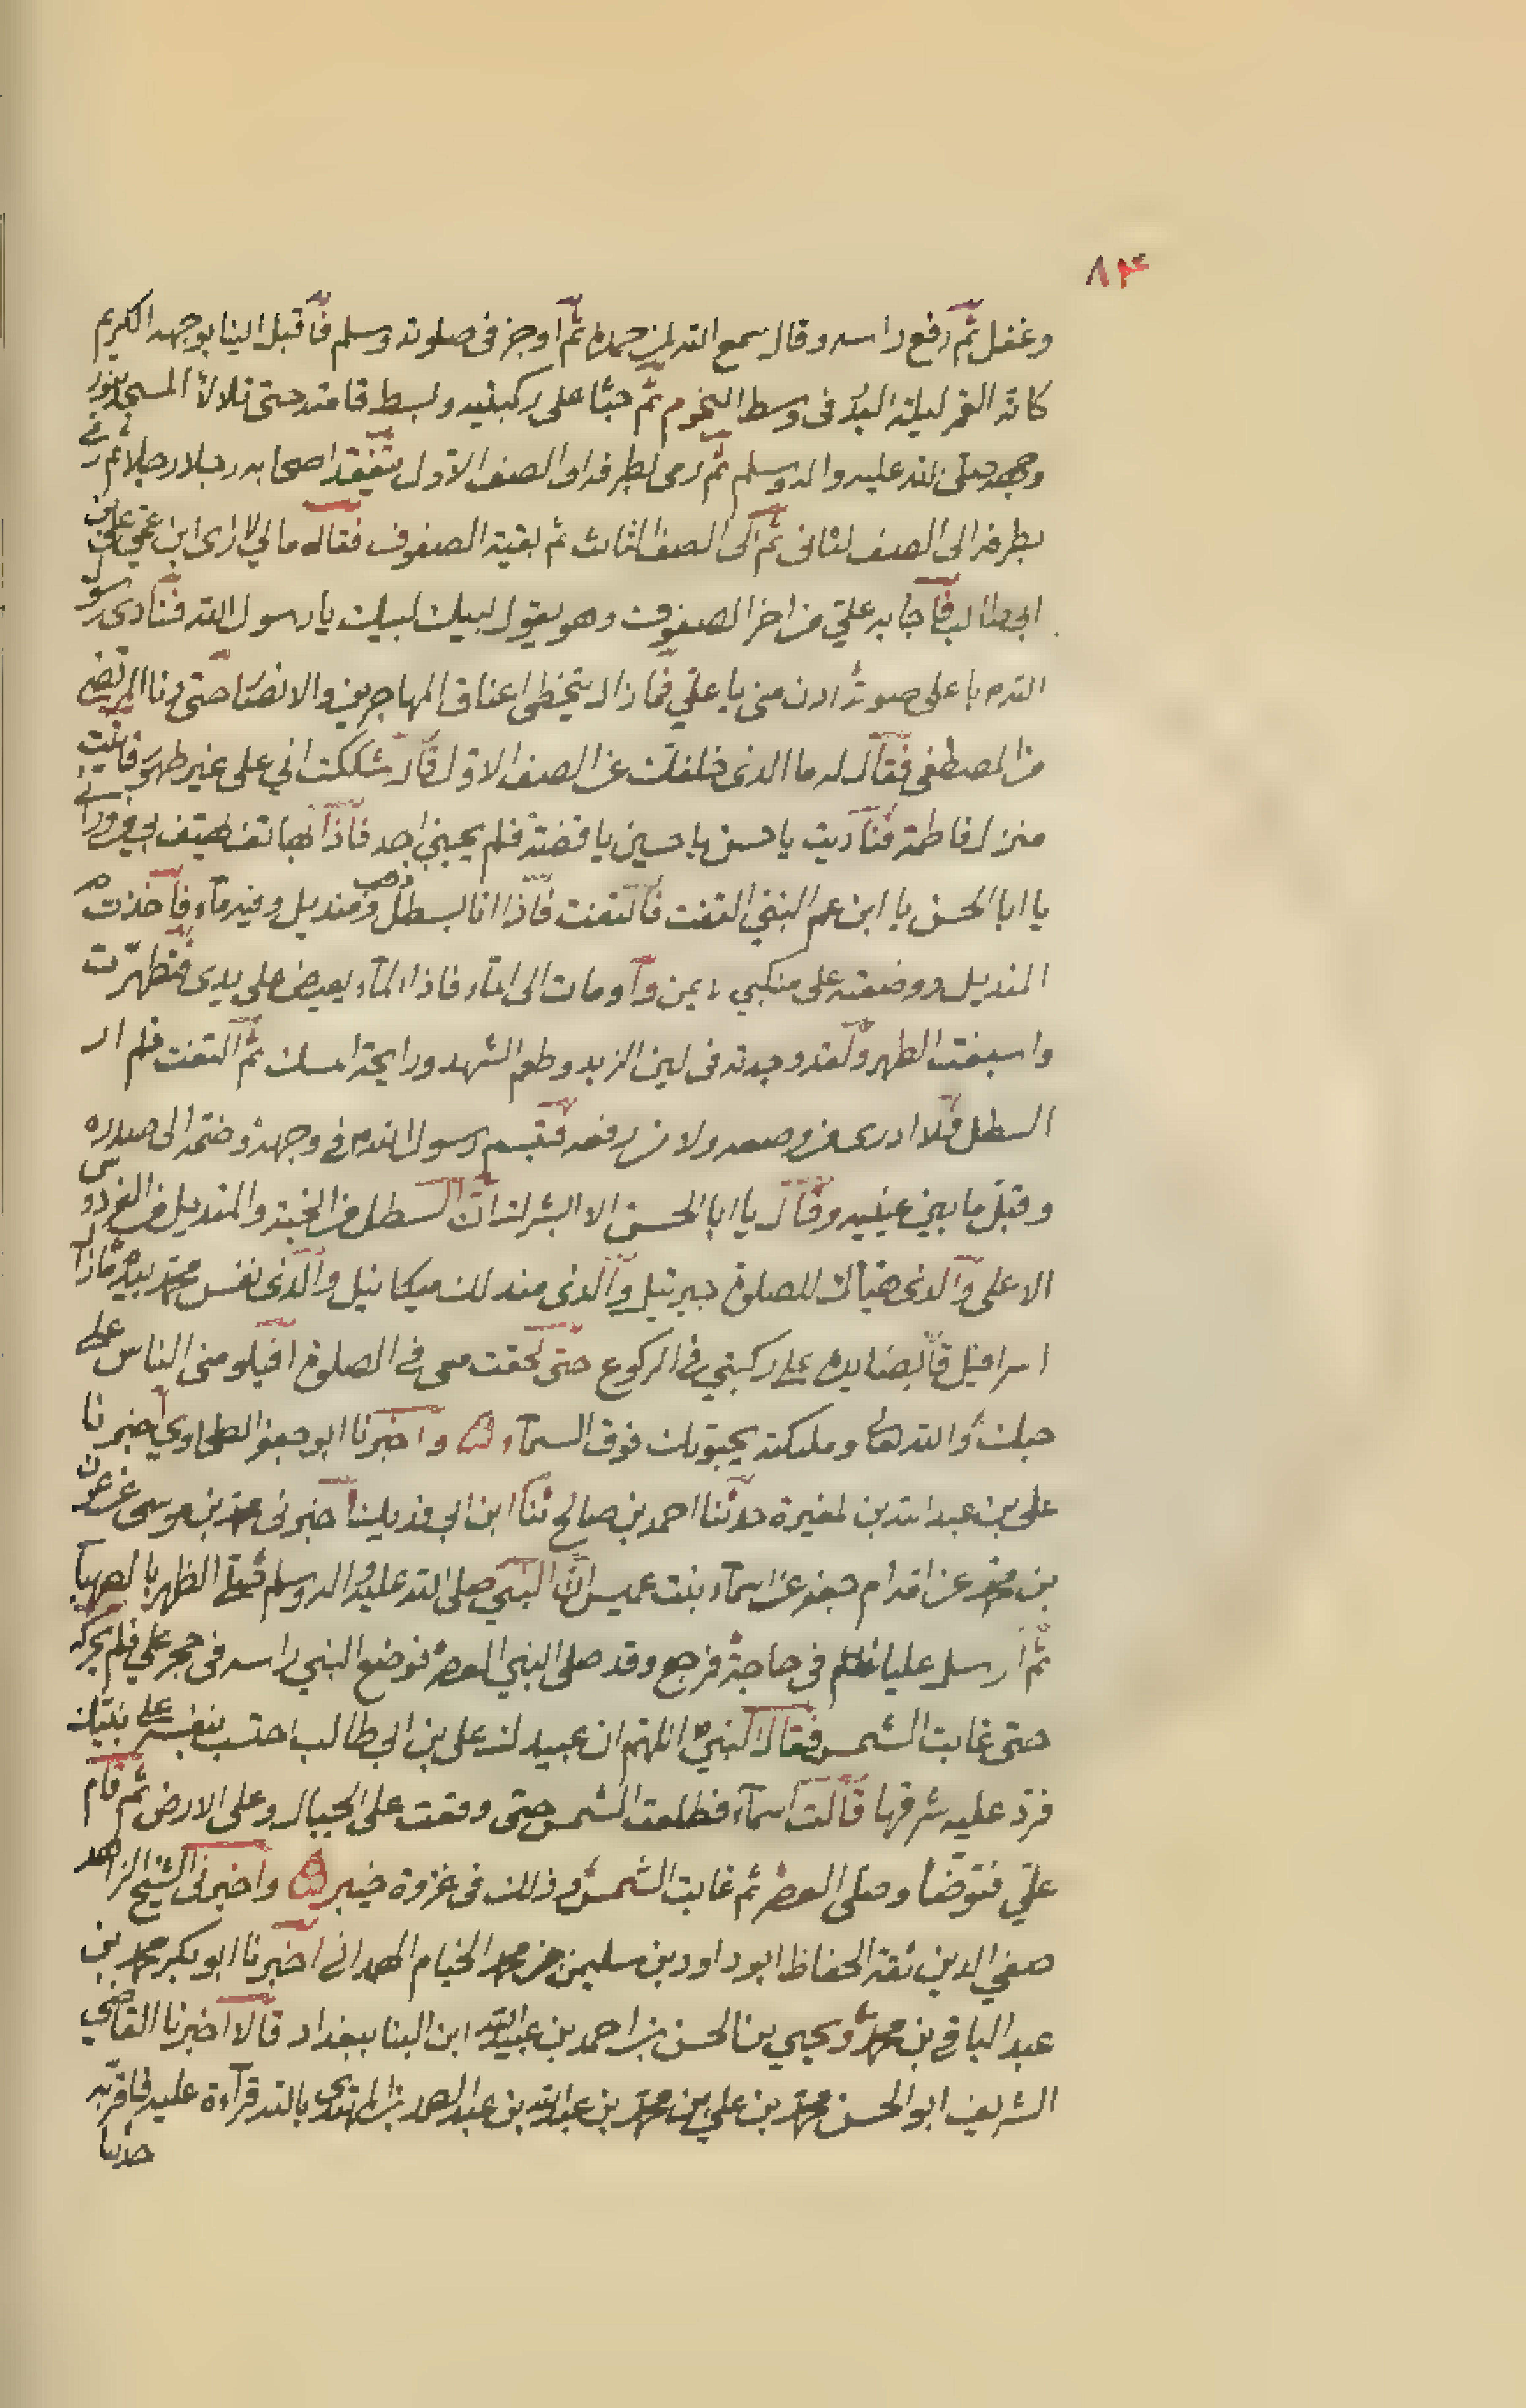 ٨٣
وغفل ثم رفع راسه وقال سمع الله لمن حمده ثم اوجز فى صلوته وسلم فاقبل الينا بوجهه الكريم
كانه القمر ليلة البدر فى وسط النجوم ثم جثا على ركبتيه وبسط قامته حتى تلالا المسجد بنور
وجهه صلى الله عليه واله وسلم ثم رمى بطرفه الى الصف الاول يتفقد اصحابه رجلا رجلا ثم رمى
بطرفه الى الصف الثانى ثم الى الصف الثالث ثم بقية الصفوف فقال مالي لا ارى ابن عمي علي بن
ابيطالب فاجابه علي من اخر الصفوف وهو يقول لبيك لبيك يا رسول الله فنادى رسول
الله م باعلى صوته ادن منى يا علي فما زال يتخطى اعناق المهاجرين والانصار حتى دنا المرتضى
من المصطفى فقال له ما الذى خلفك عن الصف الاول قال شككت اني على غير طهر فاتيت
منزل فاطمة فناديت يا حسن يا حسين يا فضة فلم يجبني احد فاذا بهاتف يهتف بي من ورائى
يا ابا الحسن يا ابن عم النبي التفت فالتفت فاذا انا بسطل ذهب ومنديل وفيه ماء فاخذت
المنديل ووضعته على منكبي الايمن واومات الى الماء فاذا الماء يفيض على يدى فتطهرت
واسبغت الطهر ولقد وجدته فى لين الزبد وطعم الشهد ورايحة المسك ثم التفت فلم ار
السطل فلا ادرى من وضعه ولا من رفعه فتبسم رسول الله م في وجهه وضمه الى صدره
وقبل ما بين عينيه وقال يا ابا الحسن الا ابشرك ان السطل من الجنة والمنديل من الفردوس
الاعلى والذى هياك للصلوة جبرئيل والذى مندلك ميكائيل والذى نفس محمد بيده ما زال
اسرافيل قابضا بيده على ركبتي في الركوع حتى لحقت معى في الصلوة افيلومنى الناس على
حبك والله تعالى وملئكته يحبونك فوق السماء واخبرنا ابو جعفر الطحاوي اخبرنا
على بن عبد الله بن المغيرة حدثنا احمد بن صالح ثنا ابن ابي فديك اخبرنى محمد بن موسى عن عون
بن محمد عن ام جعفر عن اسماء بنت عميس ان النبي صلى الله عليه واله وسلم صلى الظهر بالصهباء
ثم ارسل عليا في حاجة فرجع وقد صلى النبي العصر فوضع النبي راسه فى حجر علي فلم يحركه
حتى غابت الشمس فقال النبي اللهم ان عبدك على بن ابي طالب احتسب بنفسه على نبيك
فرد عليه شرقها قالت اسماء فطلعت الشمس حتى وقعت على الجبال وعلى الارض ثم قام
علي فتوضا وصلى العصر ثم غابت الشمس وذلك فى غزوة خيبر واخبرنى الشيخ الزاهد
صفي الدين ثقة الحفاظ ابو داود بن سليمن بن محمد الخيام الهمدانى اخبرنا ابو بكر محمد بن
عبد الباقي بن محمد ويحيى بن الحسن بن احمد بن عبد الله ابن البنا ببغداد قالا اخبرنا القاضي
الشريف ابو الحسن محمد بن علي بن محمد بن عبد الله بن عبد الصمد بن المهتدى بالله قرآءة عليه فاقر به
حدثنا